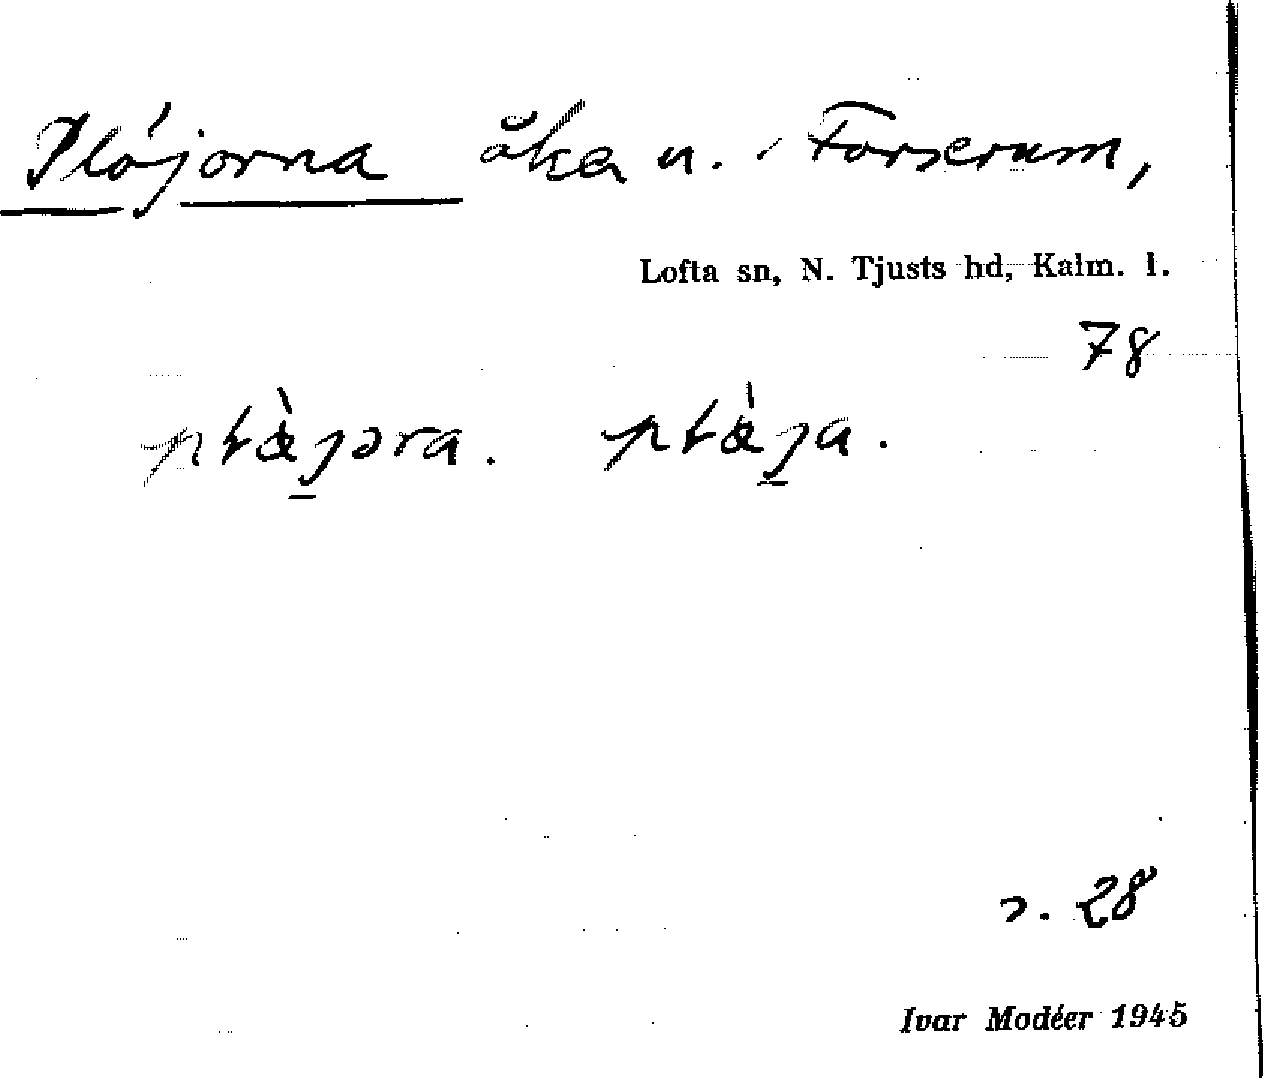 Plöjorna åker n. i Forserum,
Lofta sn, N. Tjusts hd, Kalm. l.
78
pɫæ̀jəra. pɫæ̀ja.
s. 28
Ivar Modéer 1945